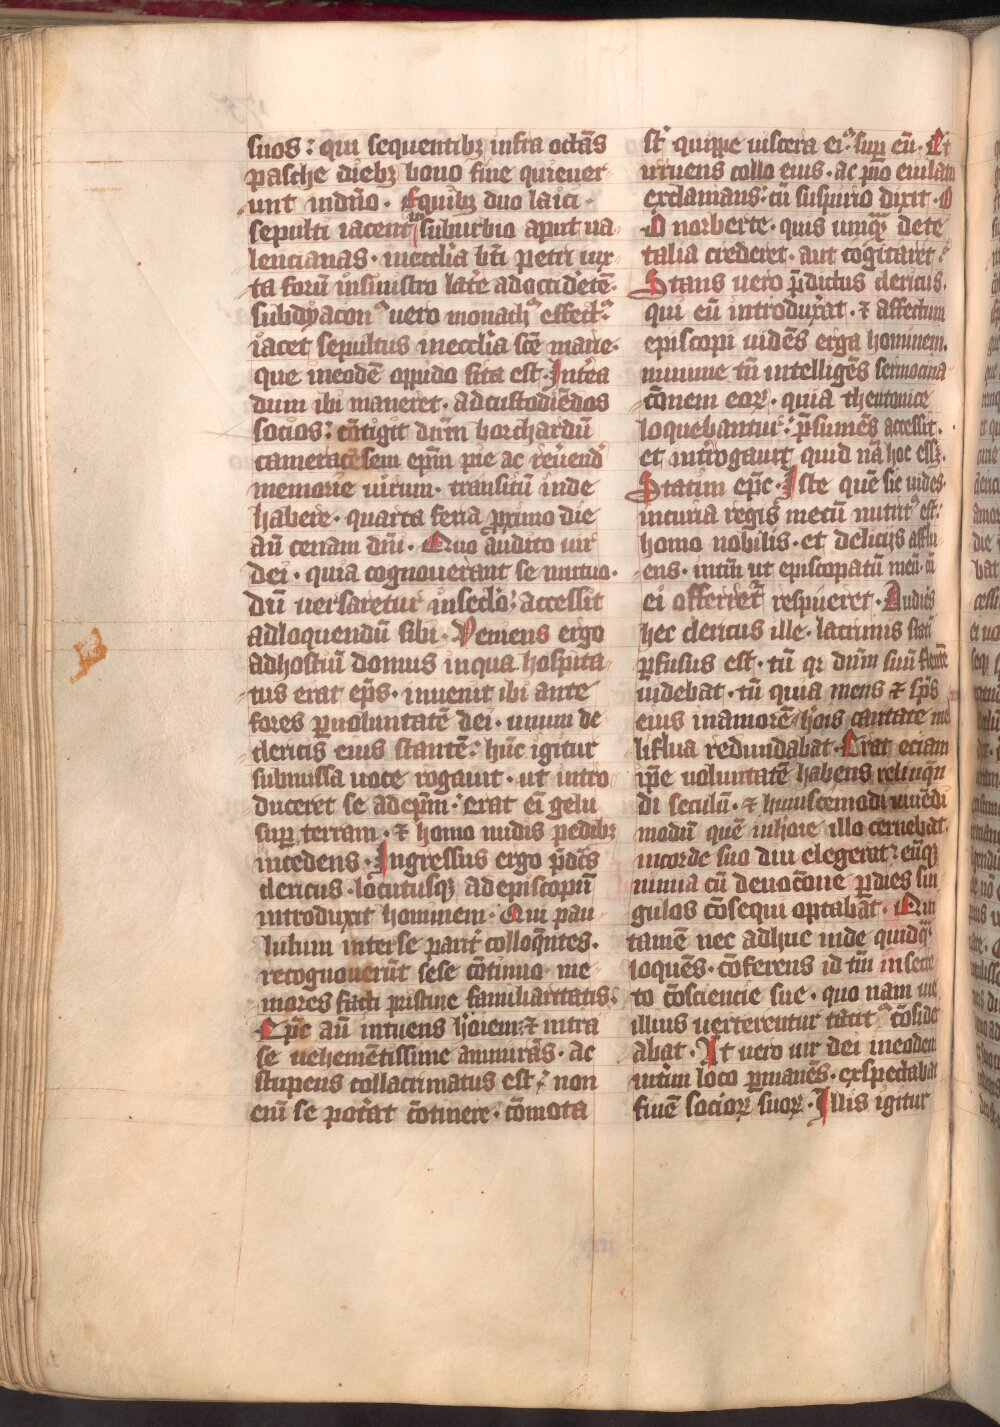 suos: qui sequentibꝫ infra octās
pasche diebꝫ bono fine quieuer
unt indn̄o. Equibꝫ duo laici
sepulti iacent in suburbio aput ua
lencianas. inecclīa bt̄i petri iux
ta forū insinistro lat̄e adoccidētē.
subdyaconꝰ uero monachꝰ effectꝰ.
iacet sepultus inecclīa sc̄e marie.
que ineodē oppido sita est. Intēa
dum ibi maneret. adcustodiēdos
socios: cōtigit dn̄m borchardū
cameracēsem ep̄m pie ac reuend̄
memorie uirum. transitū inde
habere. quarta feria proximo die
an̄ cenam dn̄i. Quo audito uir
dei. quia cognouerant se mutuo.
dū uersaretur insecl̄o: accessit
adloquendū sibi. Veniens ergo
adhostiū domus inqua hospita
tus erat ep̄s. inuenit ibi ante
fores ꝑuoluntatē dei. unum de
clericis eius stantē: hūc igitur
submissa uoce rogauit. ut intro
duceret se adep̄m. Erat ei̅ gelu
suꝑ terram. ⁊ homo nudis pedibꝫ
incedens. Ingressus ergo p̄dc̄s
clericus. locutusqꝫ adepiscopū
introduxit hominem. Qui pau
lulum inter se parit̄ colloq̄ntes.
recognouerūt sese cōtinuo. me
mores facti pristine familiaritatis.
Ep̄c au̅ intuens ho̅iem: ⁊ intra
se uehemētissime ammirās. ac
stupens collacrimatus est. non
eni̅ se pot̄at cōtinere. cōmota
st̄ quippe uiscera eiꝰ suꝑ eū. Et
irruens collo eius. ac pio eiulatu
exclamans: cū suspirio dixit. O
O norberte. quis umqȝ dete
talia crederet. aut cogitaret.
Stans uero p̄dictus clericus.
qui eū introduxāt. ⁊ affectum
episcopi uidēs erga hominem.
minime tn̄ intelligēs sermocina
cōnem eoꝝ. quia theutonice
loquebantur: p̄sumēs accessit.
et int̄rogauit quid nā hoc ess̄ꝫ.
Statim ep̄c. Iste quē sic uides.
incuria regis mecū nutritꝰ est:
homo nobilis. et delicijs afflu
ens. intm̄ ut episcopatū meū. cū
ei offerret̄ respueret. Audiēs
hec clericus ille. lacrimis statī
ꝑfusus est. tū qꝛ dn̄m suū flentē
uidebat. tū quia mens ⁊ sp̄s
eius inamorē ho̅is caritate me
liflua redundabat. Erat eciam
ip̄e uoluntatē habens relinq̄n
di seculū. ⁊ huiuscemodi uiuēdi
modū quē inho̅ie illo cernebat.
incorde suo diu elegerat: eūqꝫ
nimia cū deuoc̄one ꝑdies sin
gulos cōsequi optabāt. Qui
tamē nec adhuc inde quidqȝ
loquēs. cōferens id tm̄ insecre
to cōsciencie sue. quo nam uie
illius uerterentur tacitꝰ cōside
abat. At uero uir dei ineodem
int̄im loco ꝑmanēs. exspectabat
finē socioꝝ suoꝝ. Illis igitur